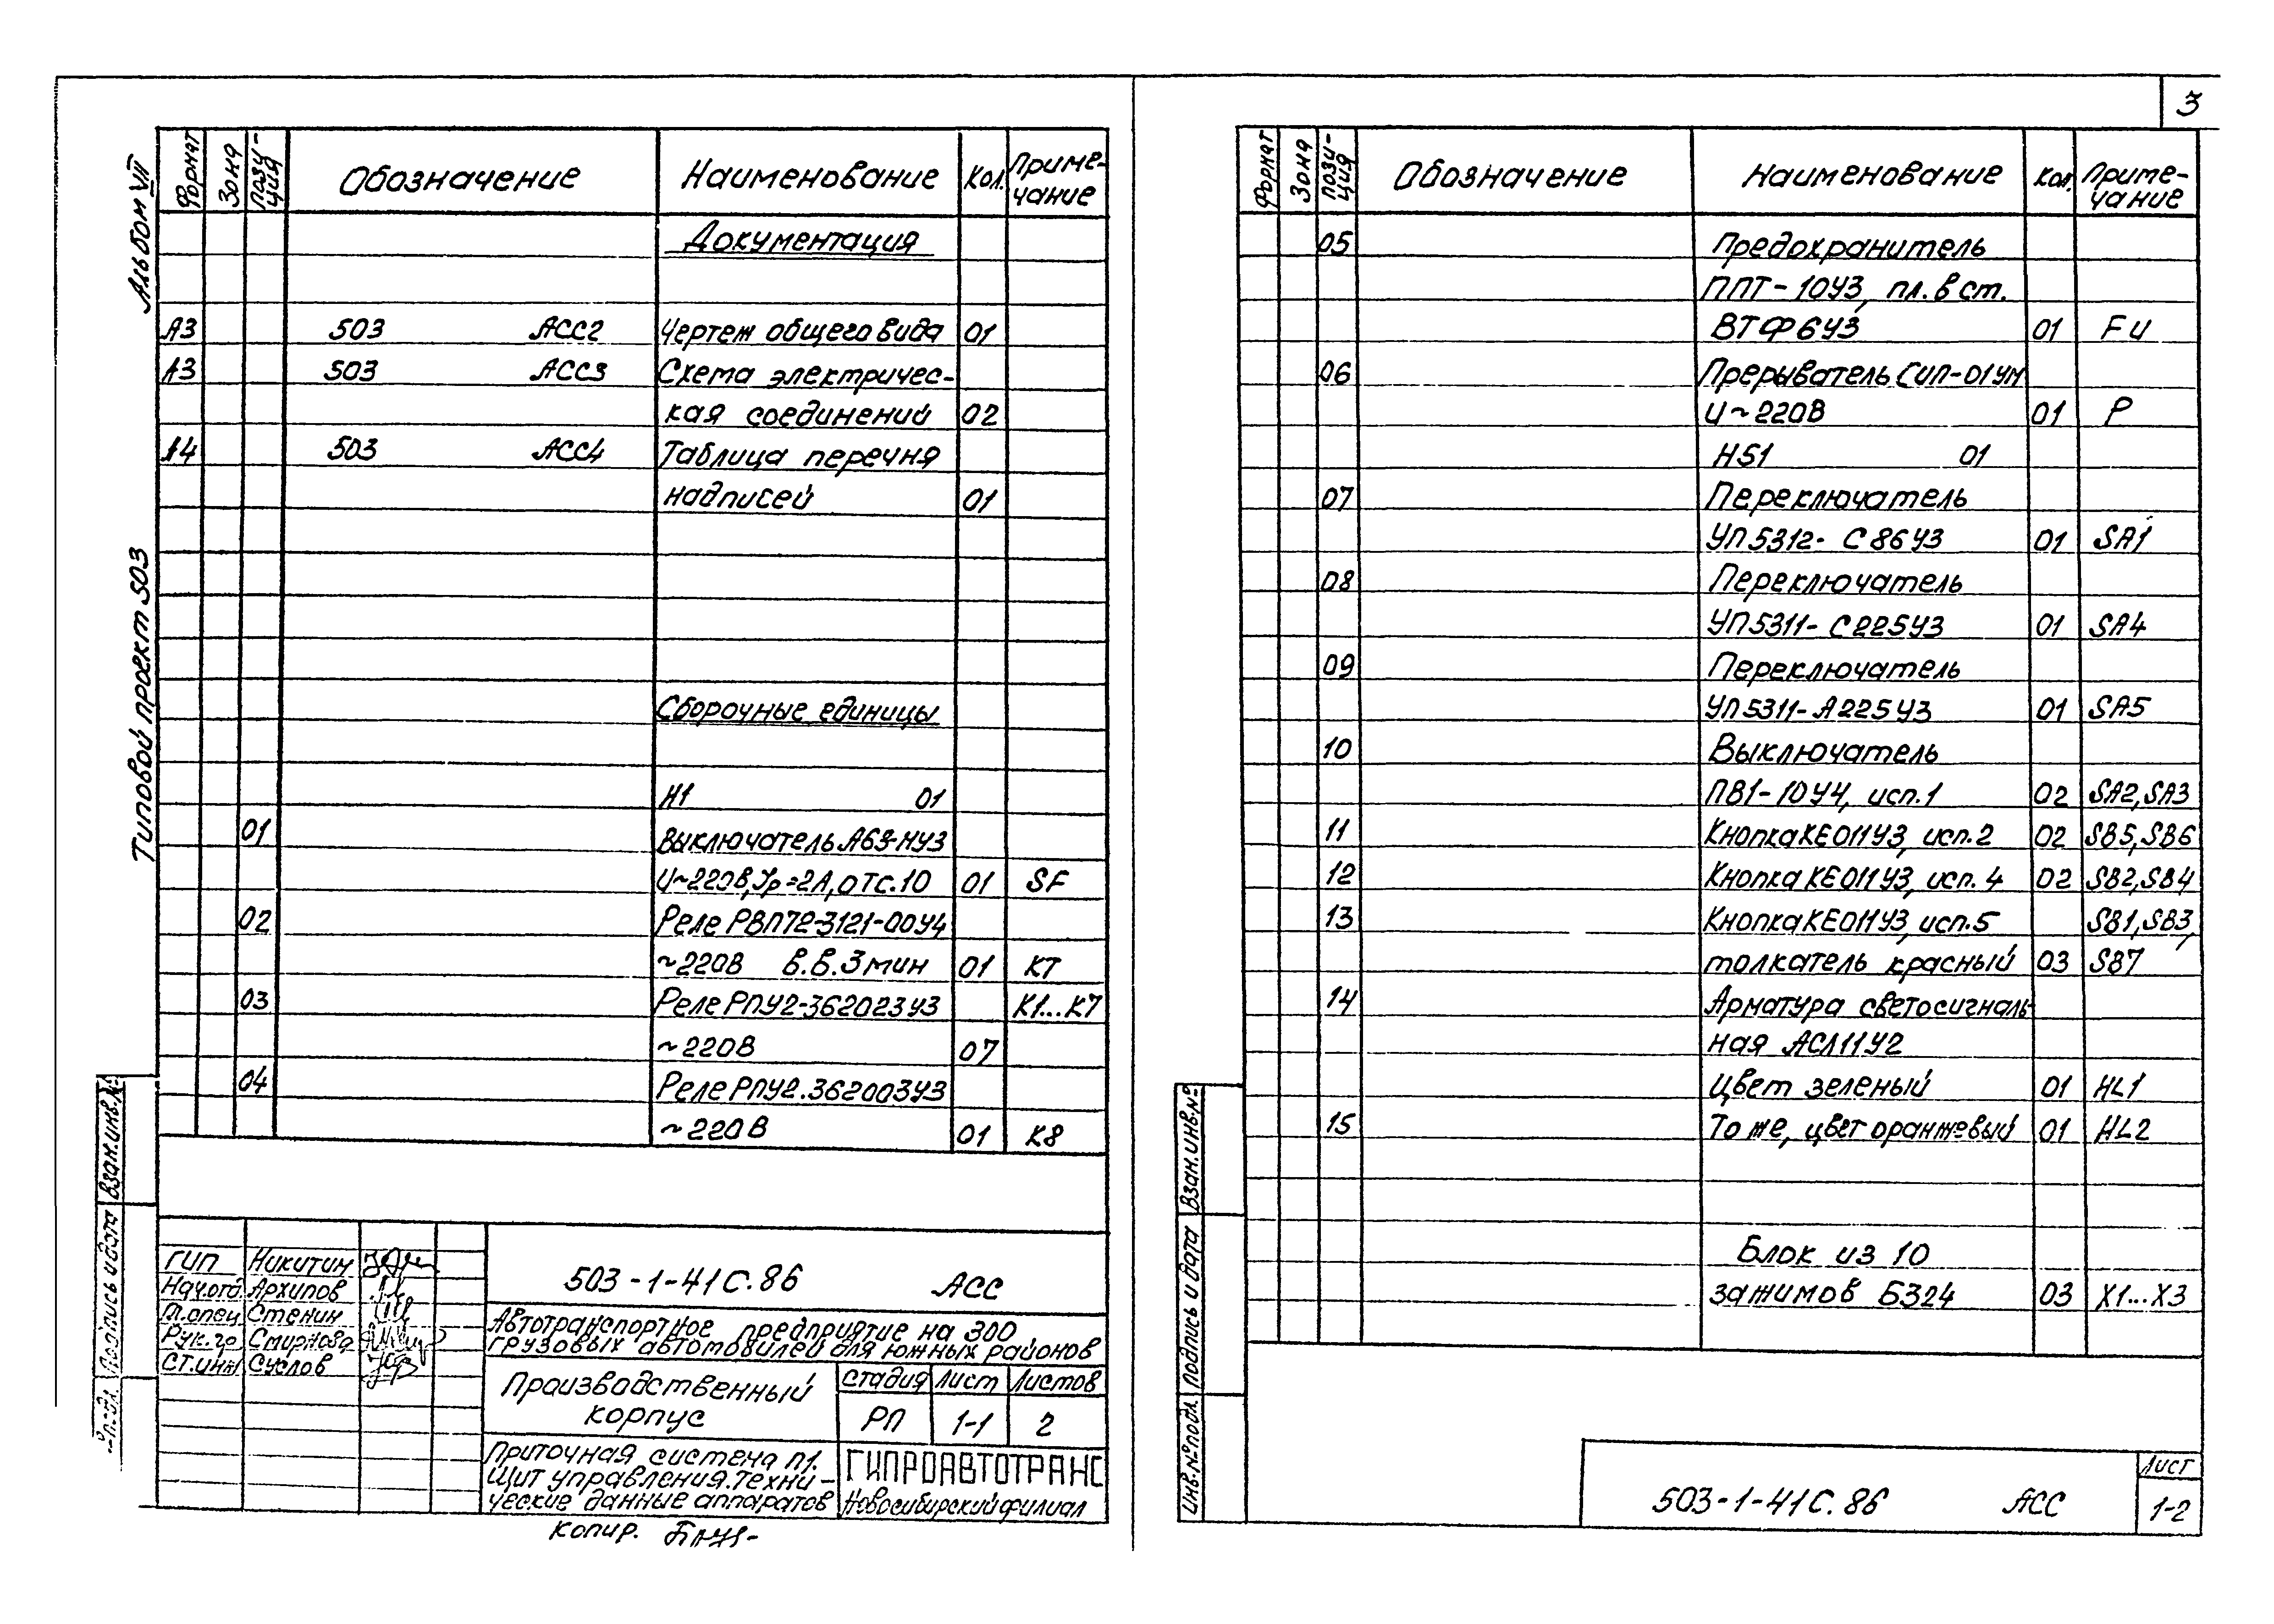 3
Альбом VII
Типовой проект 503
Формат Зона Пози-ция Обозначение Наименование Кол. Приме-чание
Документация
А3 503 АСС2 Чертеж общего вида 01
А3 503 АСС3 Схема электричес-
кая соединений 02
А4 503 АСС4 Таблица перечня
надписей 01
Сборочные единицы
Н1 01
01 Выключатель А63-МУ3
U~220В, Jр=2А, отс.10 01 SF
02 Реле РВП72-3121-00У4
~220В в.в.3мин 01 КТ
03 Реле РПУ2-362023У3 К1...К7
~220В 07
04 Реле РПУ2.362003У3
~220В 01 К8
Взам.инв.№
Подпись и дата
ГИП Никитин
Нач.отд. Архипов
Гл.спец Стенин
Рук.гр. Смирнова
Ст.инж Суслов
503-1-41С.86 АСС
Автотранспортное предприятие на 300
грузовых автомобилей для южных районов
Производственный
корпус
Стадия Лист Листов
РП 1-1 2
Приточная система П1.
Щит управления.Техни-
ческие данные аппаратов
ГИПРОАВТОТРАНС
Новосибирский филиал
Копир.
Формат Зона Пози-ция Обозначение Наименование Кол. Приме-чание
05 Предохранитель
ППТ-10У3, пл.вст.
ВТФ6У3 01 FU
06 Прерыватель СИП-01УМ
U~220В 01 Р
Н51 01
07 Переключатель
УП5312-С86У3 01 SA1
08 Переключатель
УП5311-С225У3 01 SA4
09 Переключатель
УП5311-А225У3 01 SA5
10 Выключатель
ПВ1-10У4, исп.1 02 SA2,SA3
11 Кнопка КЕ011У3, исп.2 02 SB5,SB6
12 Кнопка КЕ011У3, исп.4 02 SB2,SB4
13 Кнопка КЕ011У3, исп.5 SB1,SB3,
толкатель красный 03 SB7
14 Арматура светосигналь-
ная АСЛ11У2
Цвет зеленый 01 HL1
15 То же, цвет оранжевый 01 HL2
Блок из 10
зажимов БЗ24 03 Х1...Х3
Взам.инв.№
Подпись и дата
Инв.№подл.
503-1-41С.86 АСС
Лист
1-2